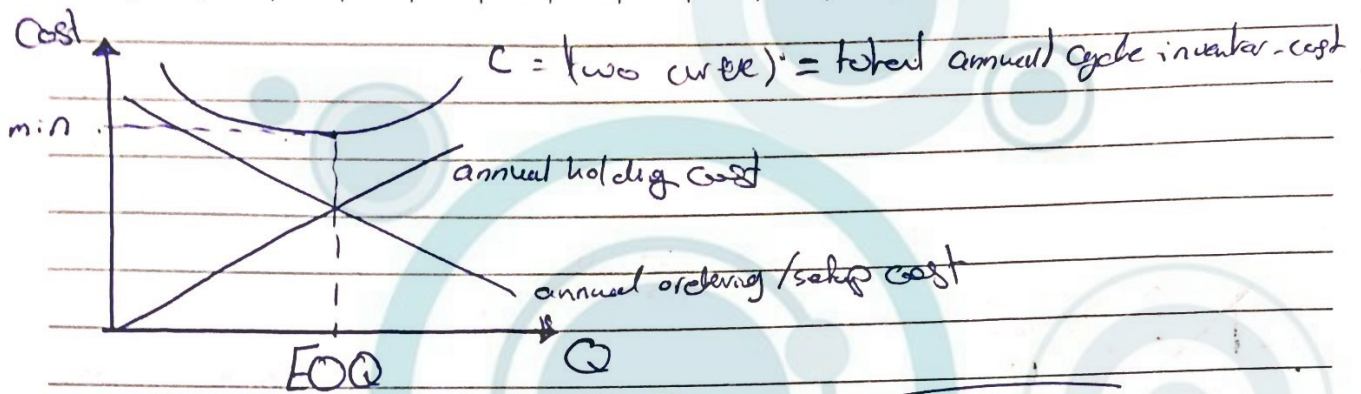 Cost
C = (two curve) = total annual cycle inventor-cost
min
annual holdig cost
annual ordering/setup cost
EOQ
Q